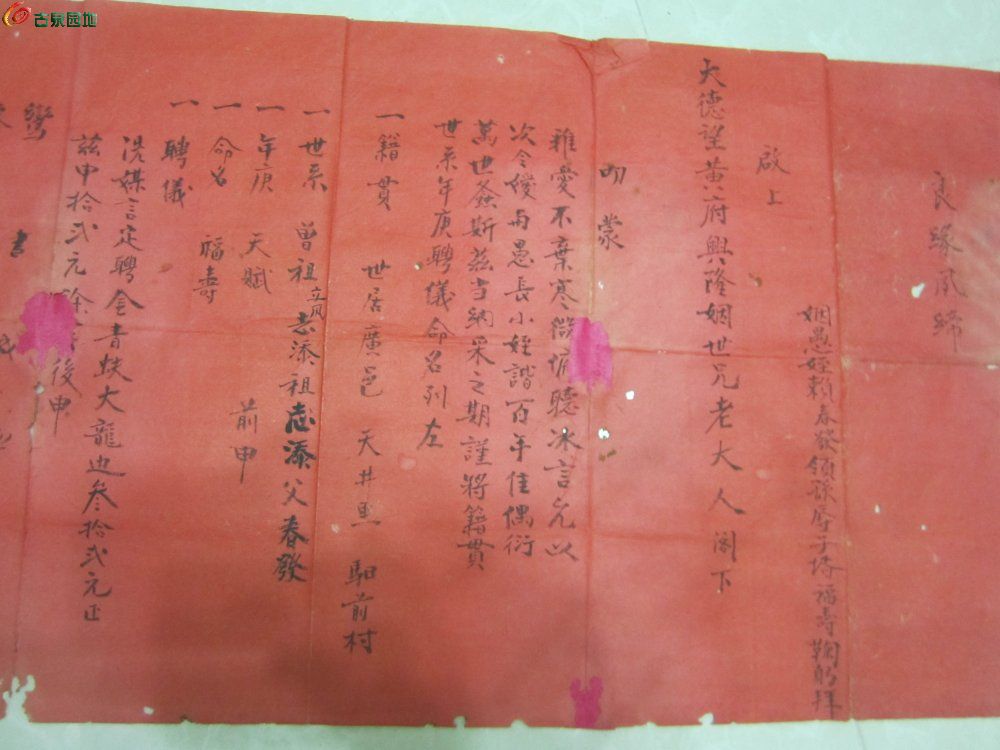 古泉园地
良緣夙締
姻愚姪賴春發領 辱子 福壽鞠躬拜
啟上
大德望黃府興隆姻世兄老大人閣下
叨蒙
雅愛不棄寒微 聽冰言允以
次令嬡與愚長小姪諧百年佳偶衍
萬世螽斯茲當納采之期謹將籍貫
世系年庚聘儀命名列左
一籍貫 世居廣邑 天井 前村
一世系 曾祖立 志添祖志添父春發
一年庚 天賦 前申
一命名 福壽
一聘儀
洗媒言定聘金青蚨大龍 叁拾弍元正
茲申拾弍元餘 後申
鸞書